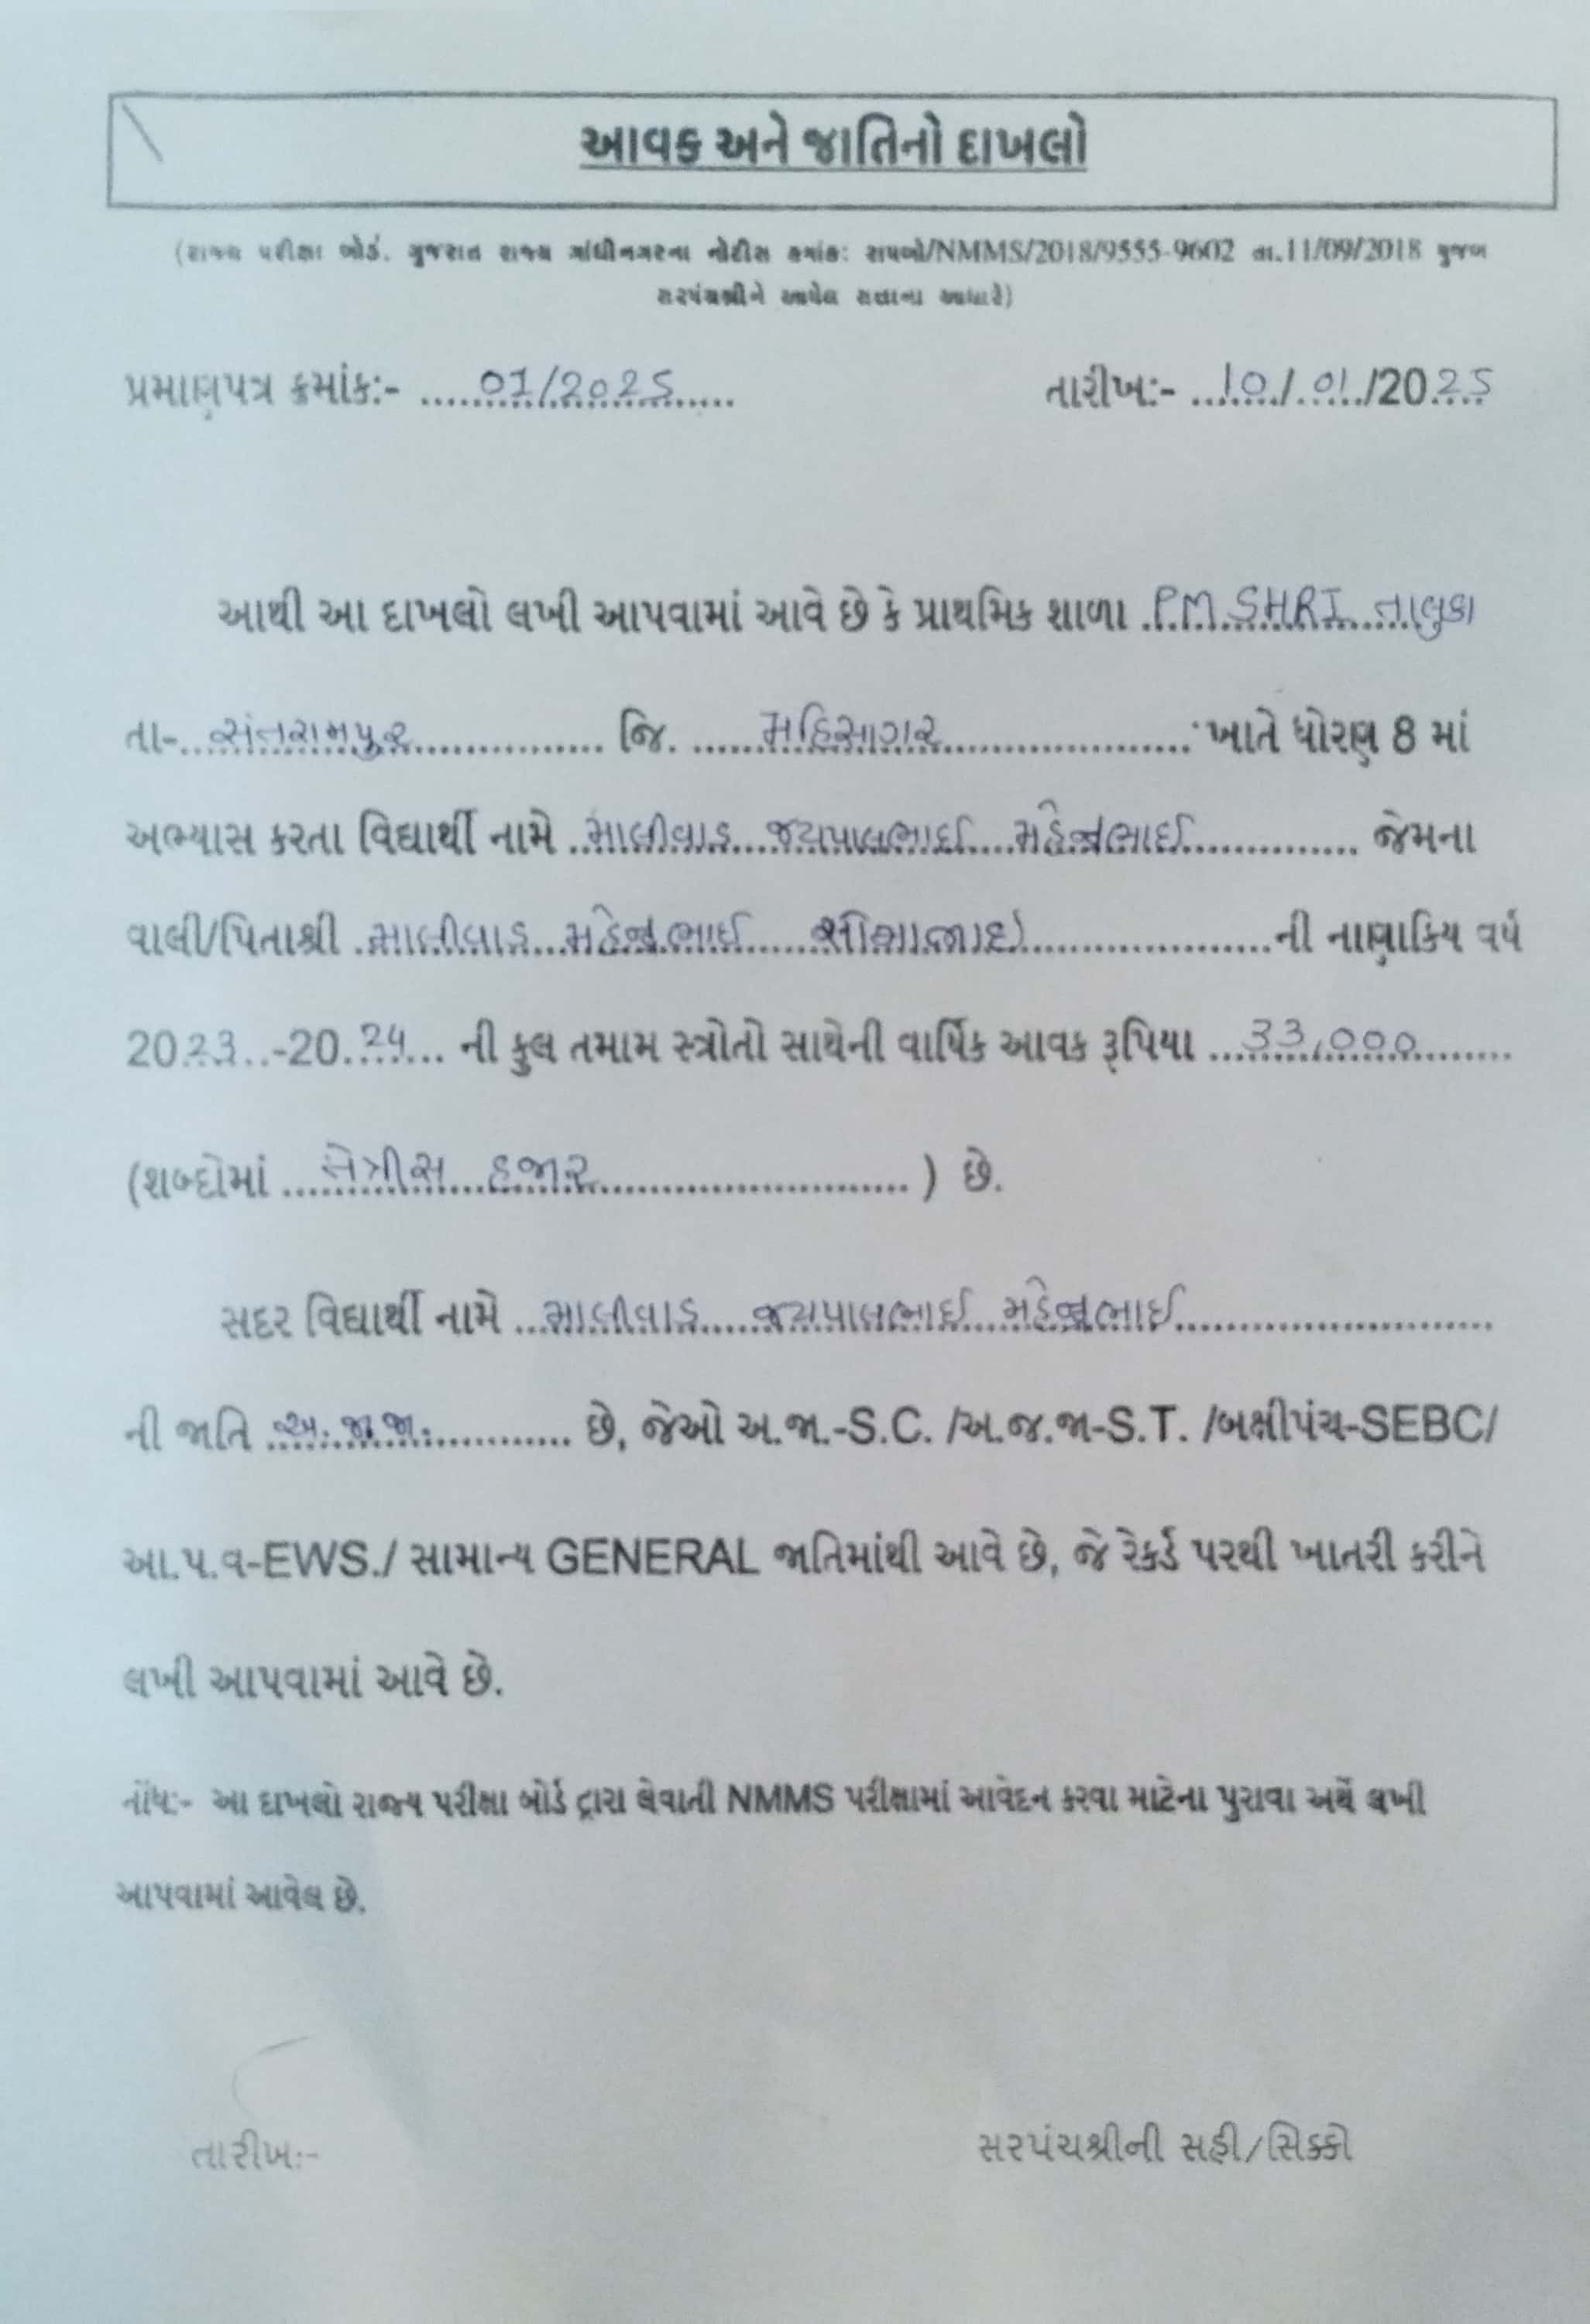 આવક અને જાતિનો દાખલો
(રાજ્ય પરીક્ષા બોર્ડ, ગુજરાત રાજ્ય ગાંધીનગરના નોટીસ ક્રમાંક: રાપબો/NMMS/2018/9555-9602 તા.11/09/2018 મુજબ
સરપંચશ્રીને આપેલ સત્તાના આધારે)
પ્રમાણપત્ર ક્રમાંક:- .....01/2025..... તારીખ:- ..10../..01../20.25
આથી આ દાખલો લખી આપવામાં આવે છે કે પ્રાથમિક શાળા .P.M. SHRI તાલુકા
તા-..સંતરામપુર.............. જિ. .....મહિસાગર.................... ખાતે ધોરણ 8 માં
અભ્યાસ કરતા વિદ્યાર્થી નામે ..માલીવાડ...જયપાલભાઈ...મહેન્દ્રભાઈ.............. જેમના
વાલી/પિતાશ્રી .માલીવાડ...મહેન્દ્રભાઈ........................ની નાણાકિય વર્ષ
20.23..-20.24... ની કુલ તમામ સ્ત્રોતો સાથેની વાર્ષિક આવક રૂપિયા ...33,000.......
(શબ્દોમાં ...તેત્રીસ...હજાર........................) છે.
સદર વિદ્યાર્થી નામે ...માલીવાડ.....જયપાલભાઈ...મહેન્દ્રભાઈ........................
ની જાતિ .અ.જ.જા............ છે, જેઓ અ.જા.-S.C. /અ.જ.જા-S.T. /બક્ષીપંચ-SEBC/
આ.પ.વ-EWS./ સામાન્ય GENERAL જાતિમાંથી આવે છે, જે રેકર્ડ પરથી ખાતરી કરીને
લખી આપવામાં આવે છે.
નોંધ:- આ દાખલો રાજ્ય પરીક્ષા બોર્ડ દ્વારા લેવાતી NMMS પરીક્ષામાં આવેદન કરવા માટેના પુરાવા અર્થે લખી
આપવામાં આવેલ છે.
તારીખ:- સરપંચશ્રીની સહી/સિક્કો